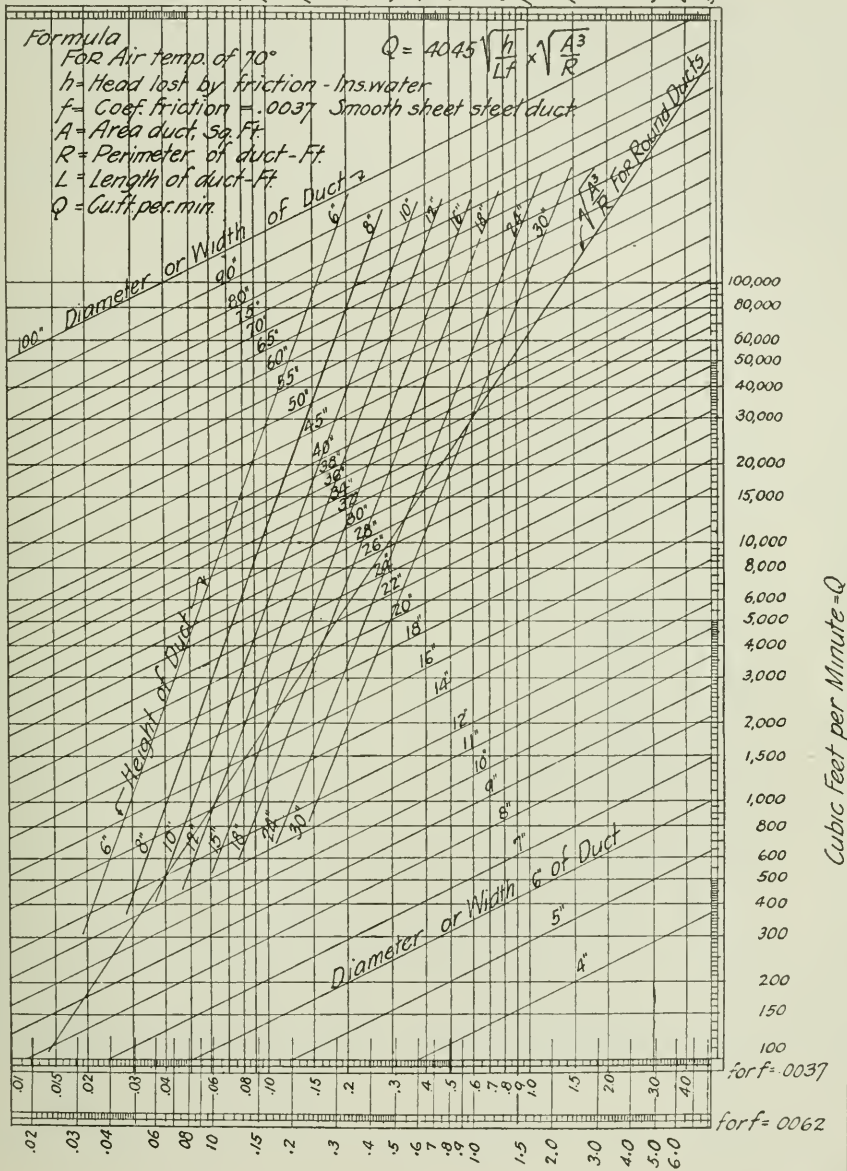 Formula
For Air temp. of 70°
h = Head lost by friction - Ins. water
f = Coef. friction = .0037 Smooth sheet steel duct
A = Area duct, Sq. Ft.
R = Perimeter of duct - Ft.
L = Length of duct - Ft.
Q = Cu. ft. per. min.
Q = 4045 √(h/Lf) × √(A³/R)
√(A³/R) For Round Ducts
100" Diameter or Width of Duct
6" 8" 10" 12" 16" 18" 24" 30"
90"
80"
75"
70"
65"
60"
55"
50"
45"
40"
38"
36"
34"
32"
30"
28"
26"
24"
22"
20"
18"
16"
14"
12"
11"
10"
9"
8"
7"
Height of Duct
6" 8" 10" 12" 15" 18" 24" 30"
Diameter or Width 6" of Duct
5"
4"
100,000
80,000
60,000
50,000
40,000
30,000
20,000
15,000
10,000
8,000
6,000
5,000
4,000
3,000
2,000
1,500
1,000
800
600
500
400
300
200
150
100
Cubic Feet per Minute = Q
.01 .015 .02 .03 .04 .06 .08 .10 .15 .2 .3 .4 .5 .6 .7 .8 .9 1.0 1.5 2.0 3.0 4.0
for f = .0037
.02 .03 .04 .06 .08 .10 .15 .2 .3 .4 .5 .6 .7 .8 .9 1.0 1.5 2.0 3.0 4.0 5.0 6.0
for f = .0062